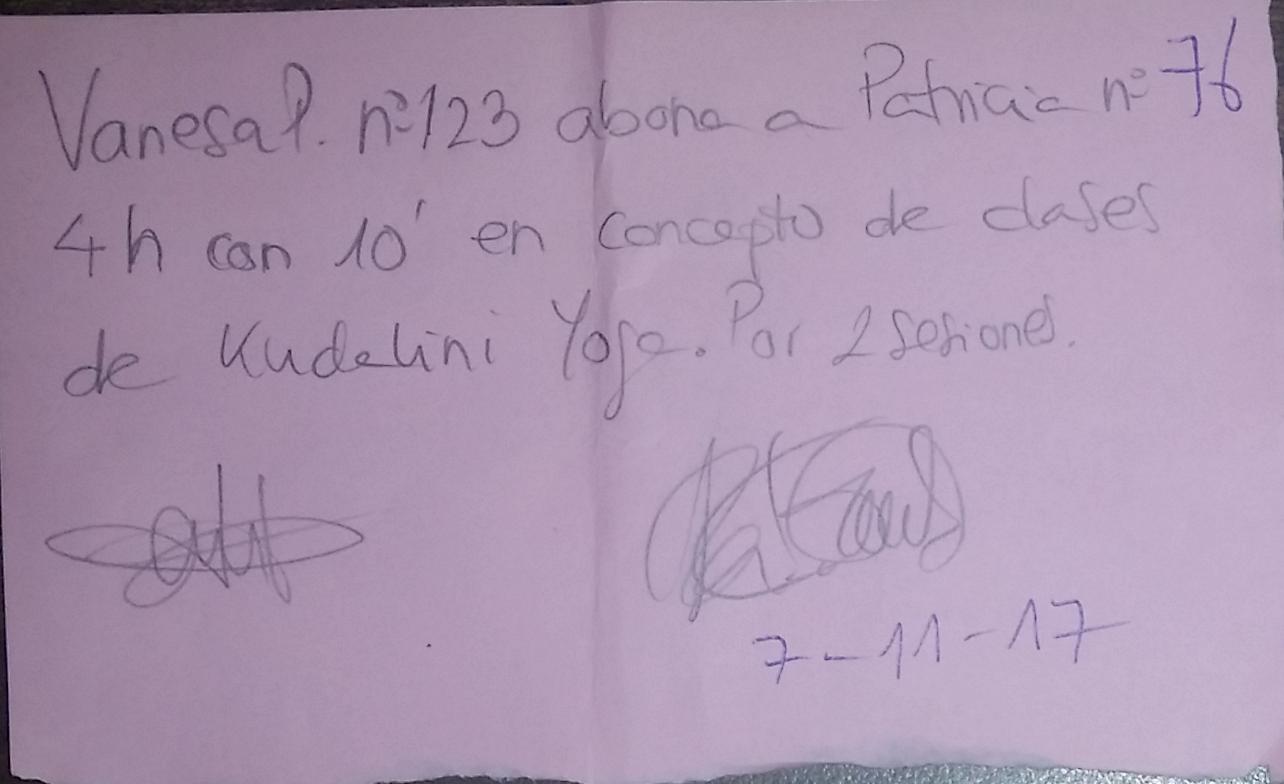 Vanesa P. nº 123 abona a Patricia nº 76
4h con 10' en concepto de clases
de Kudalini Yoga. Por 2 sesiones.
7-11-17